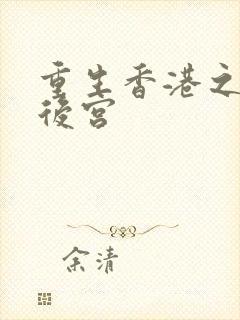 重生香港之
後宮
余清